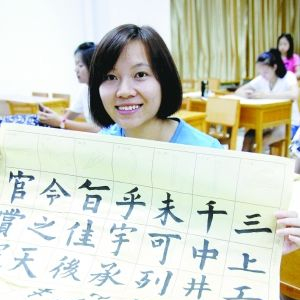 三上
千中井
未可列
乎宇承
旨佳後
今之天
官賞